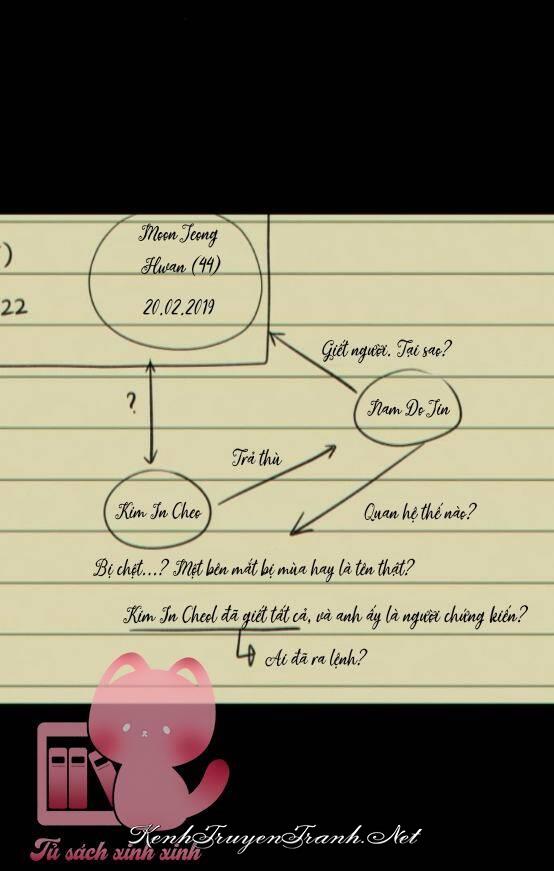 Moon Jeong
Hwan (44)
)
22
20.02.2019
Giết người. Tại sao?
?
Nam Do Jin
Trả thù
Kim In Cheo
Quan hệ thế nào?
Bị chột...? Một bên mắt bị mùa hay là tên thật?
Kim In Cheol đã giết tất cả, và anh ấy là người chứng kiến?
Ai đã ra lệnh?
KenhTruyenTranh.Net
Tủ sách xinh xinh